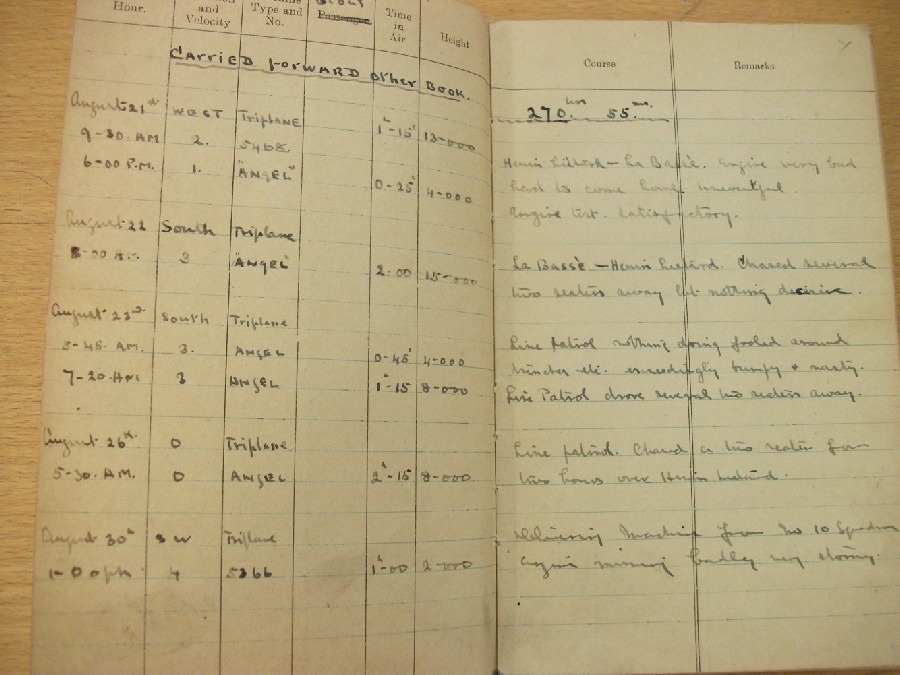 Hour. and Velocity Type and No. Passenger Time in Air Height Course Remarks
Carried forward other Book. 270 hrs 55 ms.
August 21st West Triplane 1h-15' 13-000
9-30. AM 2.
6-00 P.M. 1. "ANGEL" 0-25' 4-000
Henin Lietard - La Bassè. Engine very bad
had to come home uneventful.
Engine test. Satisfactory.
August 22 South Triplane
8-00 A.M. 3 "ANGEL" 2-00 15-000
La Bassè - Henin Lietard. Chased several
two seaters away but nothing decisive.
August 23rd South Triplane
5-45 AM. 3. ANGEL 0-45' 4-000
7-20 AM 3 ANGEL 1h-15 8-000
Line patrol nothing doing fooled around
trenches etc. exceedingly bumpy & nasty.
Line Patrol drove several two seaters away.
August 26th 0 Triplane
5-30. A.M. 0 ANGEL 2h-15 8-000
Line patrol. Chased a two seater for
two hours over Henin Lietard.
August 30th SW Triplane
1-00 pm 4 5366 1h-00 2-000
Delivering Machine from No 10 Squadron
engine missing badly very stormy.